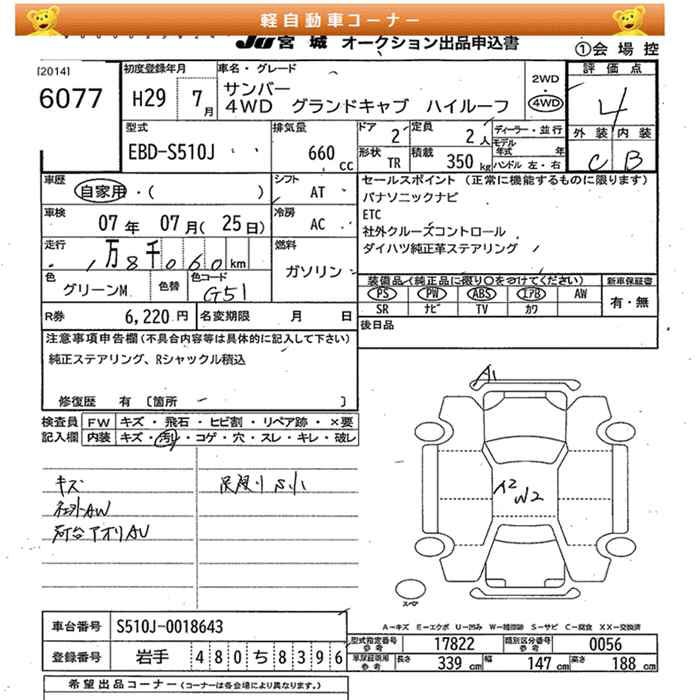 軽自動車コーナー
JU宮城 オークション出品申込書
①会場控
[2014]
6077
初度登録年月
H29 7月
車名・グレード
サンバー
4WD グランドキャブ ハイルーフ
2WD
4WD
評価点
4
外装 内装
C B
型式
EBD-S510J
排気量
660 cc
ドア 2
定員 2人
形状 TR
積載 350kg
ディーラー・並行
モデル年式 年
ハンドル 左・右
車歴
自家用・( )
シフト
AT
セールスポイント (正常に機能するものに限ります)
パナソニックナビ
ETC
社外クルーズコントロール
ダイハツ純正革ステアリング
車検
07年 07月(25日)
冷房
AC
走行
万8千060km
燃料
ガソリン
色
グリーンM
色替
色コード
G51
装備品(純正品に限り○をつけてください)
PS PW ABS エアB AW
SR ナビ TV カワ
新車保証書
有・無
R券 6,220円
名変期限 月 日
後日品
注意事項申告欄(不具合内容等は具体的に記入して下さい)
純正ステアリング、Rシャックル積込
修復歴 有 〔箇所 〕
検査員記入欄
FW キズ・飛石・ヒビ割・リペア跡・×要
内装 キズ・汚れ・コゲ・穴・スレ・キレ・破レ
キズ
荷台アオリAU
A1
A2
W2
スペア
A=キズ E=エクボ U=凹み W=補修跡 S=サビ C=腐食 XX=交換済
車台番号 S510J-0018643
登録番号 岩手 480ち8396
型式指定番号 参考 17822
類別区分番号 参考 0056
車庫証明用 参考 長さ 339cm 幅 147cm 高さ 188cm
希望出品コーナー (コーナーは各会場により異なります。)